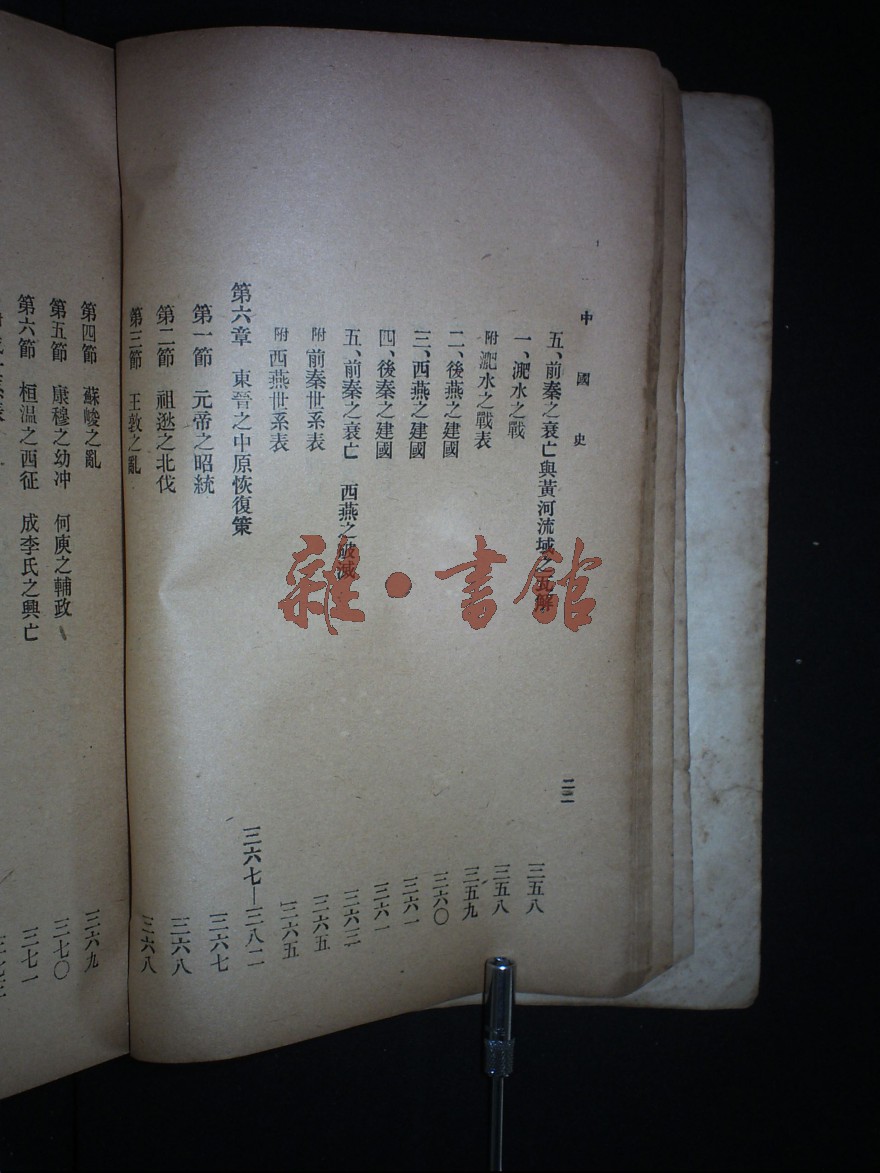 中國史
二二
五、前秦之衰亡與黃河流域之瓦解 三五八
一、淝水之戰 三五八
附 淝水之戰表 三五九
二、後燕之建國 三六〇
三、西燕之建國 三六一
四、後秦之建國 三六一
五、前秦之衰亡 西燕之破滅 三六二
附 前秦世系表 三六五
附 西燕世系表 三六五
第六章 東晉之中原恢復策 三六七—三八二
第一節 元帝之昭統 三六七
第二節 祖逖之北伐 三六八
第三節 王敦之亂 三六八
第四節 蘇峻之亂 三六九
第五節 康穆之幼冲 何庾之輔政 三七〇
第六節 桓温之西征 成李氏之興亡 三七一
雜·書館